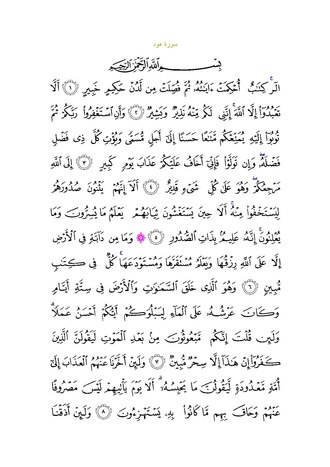 سورة هود
بِسْمِ اللَّهِ الرَّحْمَٰنِ الرَّحِيمِ
الٓر ۚ كِتَٰبٌ أُحْكِمَتْ ءَايَٰتُهُۥ ثُمَّ فُصِّلَتْ مِن لَّدُنْ حَكِيمٍ خَبِيرٍ ﴿١﴾ أَلَّا
تَعْبُدُوٓا۟ إِلَّا ٱللَّهَ ۚ إِنَّنِى لَكُم مِّنْهُ نَذِيرٌ وَبَشِيرٌ ﴿٢﴾ وَأَنِ ٱسْتَغْفِرُوا۟ رَبَّكُمْ ثُمَّ
تُوبُوٓا۟ إِلَيْهِ يُمَتِّعْكُم مَّتَٰعًا حَسَنًا إِلَىٰٓ أَجَلٍ مُّسَمًّى وَيُؤْتِ كُلَّ ذِى فَضْلٍ
فَضْلَهُۥ ۖ وَإِن تَوَلَّوْا۟ فَإِنِّىٓ أَخَافُ عَلَيْكُمْ عَذَابَ يَوْمٍ كَبِيرٍ ﴿٣﴾ إِلَى ٱللَّهِ
مَرْجِعُكُمْ ۖ وَهُوَ عَلَىٰ كُلِّ شَىْءٍ قَدِيرٌ ﴿٤﴾ أَلَآ إِنَّهُمْ يَثْنُونَ صُدُورَهُمْ
لِيَسْتَخْفُوا۟ مِنْهُ ۚ أَلَا حِينَ يَسْتَغْشُونَ ثِيَابَهُمْ يَعْلَمُ مَا يُسِرُّونَ وَمَا
يُعْلِنُونَ ۚ إِنَّهُۥ عَلِيمٌۢ بِذَاتِ ٱلصُّدُورِ ﴿٥﴾ ۞ وَمَا مِن دَآبَّةٍ فِى ٱلْأَرْضِ
إِلَّا عَلَى ٱللَّهِ رِزْقُهَا وَيَعْلَمُ مُسْتَقَرَّهَا وَمُسْتَوْدَعَهَا ۚ كُلٌّ فِى كِتَٰبٍ
مُّبِينٍ ﴿٦﴾ وَهُوَ ٱلَّذِى خَلَقَ ٱلسَّمَٰوَٰتِ وَٱلْأَرْضَ فِى سِتَّةِ أَيَّامٍ
وَكَانَ عَرْشُهُۥ عَلَى ٱلْمَآءِ لِيَبْلُوَكُمْ أَيُّكُمْ أَحْسَنُ عَمَلًا ۗ
وَلَئِن قُلْتَ إِنَّكُم مَّبْعُوثُونَ مِنۢ بَعْدِ ٱلْمَوْتِ لَيَقُولَنَّ ٱلَّذِينَ
كَفَرُوٓا۟ إِنْ هَٰذَآ إِلَّا سِحْرٌ مُّبِينٌ ﴿٧﴾ وَلَئِنْ أَخَّرْنَا عَنْهُمُ ٱلْعَذَابَ إِلَىٰٓ
أُمَّةٍ مَّعْدُودَةٍ لَّيَقُولُنَّ مَا يَحْبِسُهُۥٓ ۗ أَلَا يَوْمَ يَأْتِيهِمْ لَيْسَ مَصْرُوفًا
عَنْهُمْ وَحَاقَ بِهِم مَّا كَانُوا۟ بِهِۦ يَسْتَهْزِءُونَ ﴿٨﴾ وَلَئِنْ أَذَقْنَا